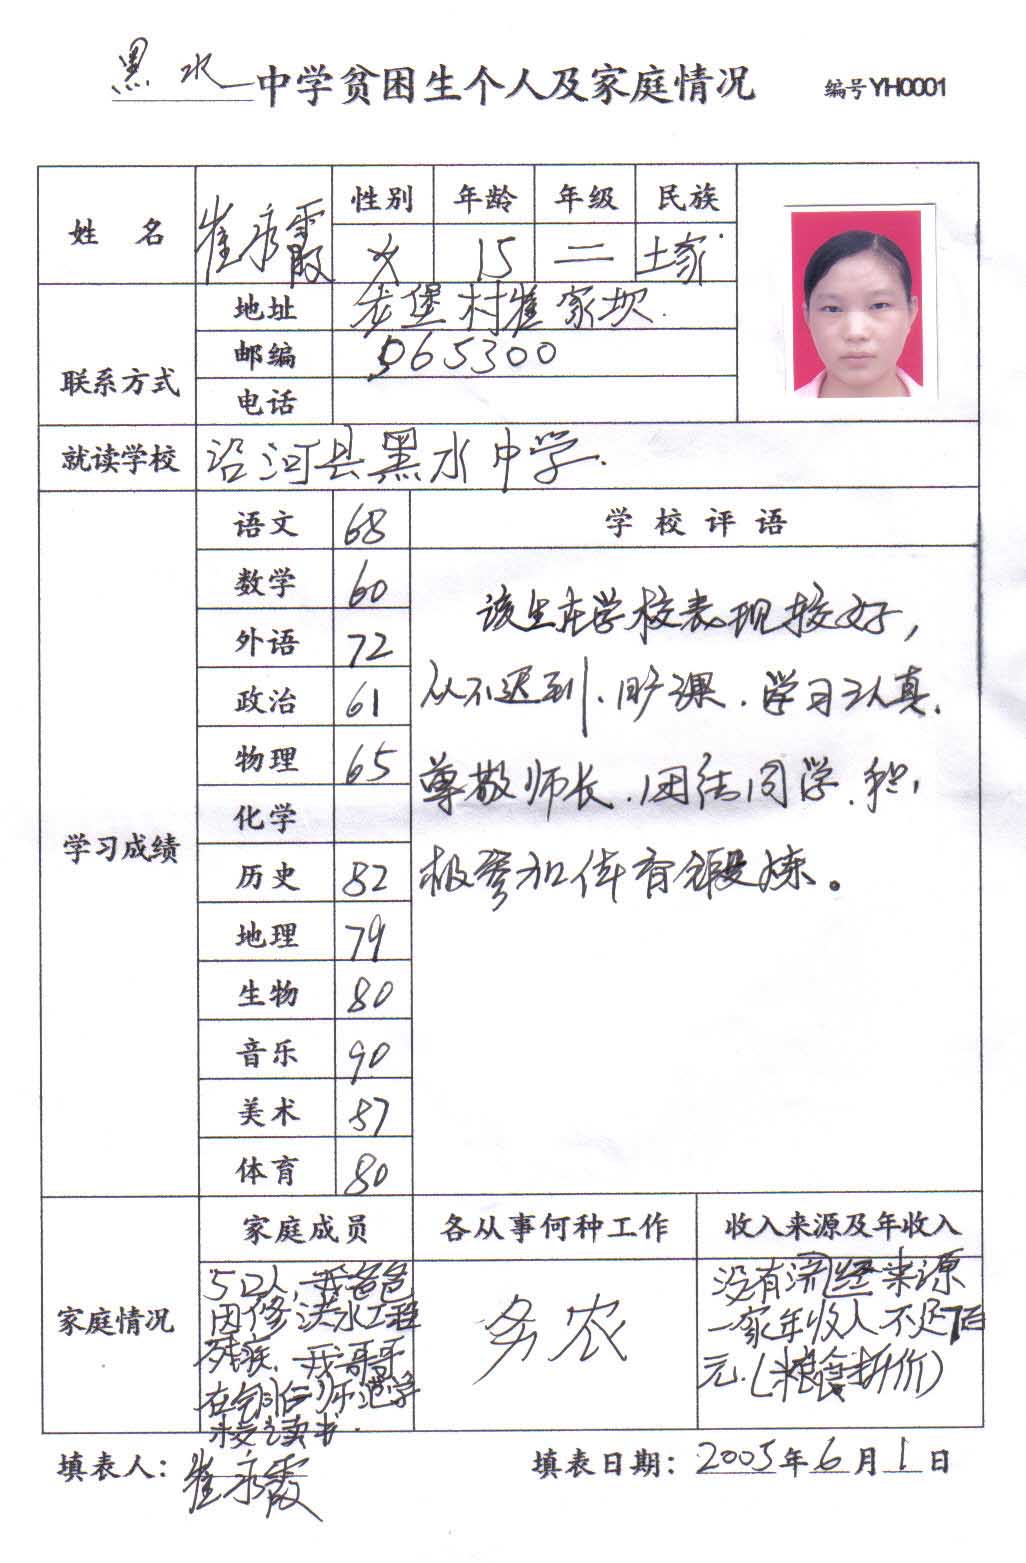 黑水中学贫困生个人及家庭情况 编号YH0001
姓 名 崔永霞 性别 年龄 年级 民族
女 15 二 土家
联系方式 地址 龙堡村崔家坝
邮编 565300
电话
就读学校 沿河县黑水中学.
学习成绩 语文 68 学校评语
数学 60
外语 72
政治 61
物理 65
化学
历史 82
地理 79
生物 80
音乐 90
美术 87
体育 80
该生在学校表现较好，
从不迟到、旷课、学习认真、
尊敬师长、团结同学、积
极参加体育锻炼。
家庭情况 家庭成员 各从事何种工作 收入来源及年收入
5口人，我爸爸
因修洪水工程
残疾，我哥哥
在铜仁师范学
校之读书.
务农
没有经来源
一家年收入不足百
元.(粮食折价)
填表人：崔永霞 填表日期：2005年6月1日